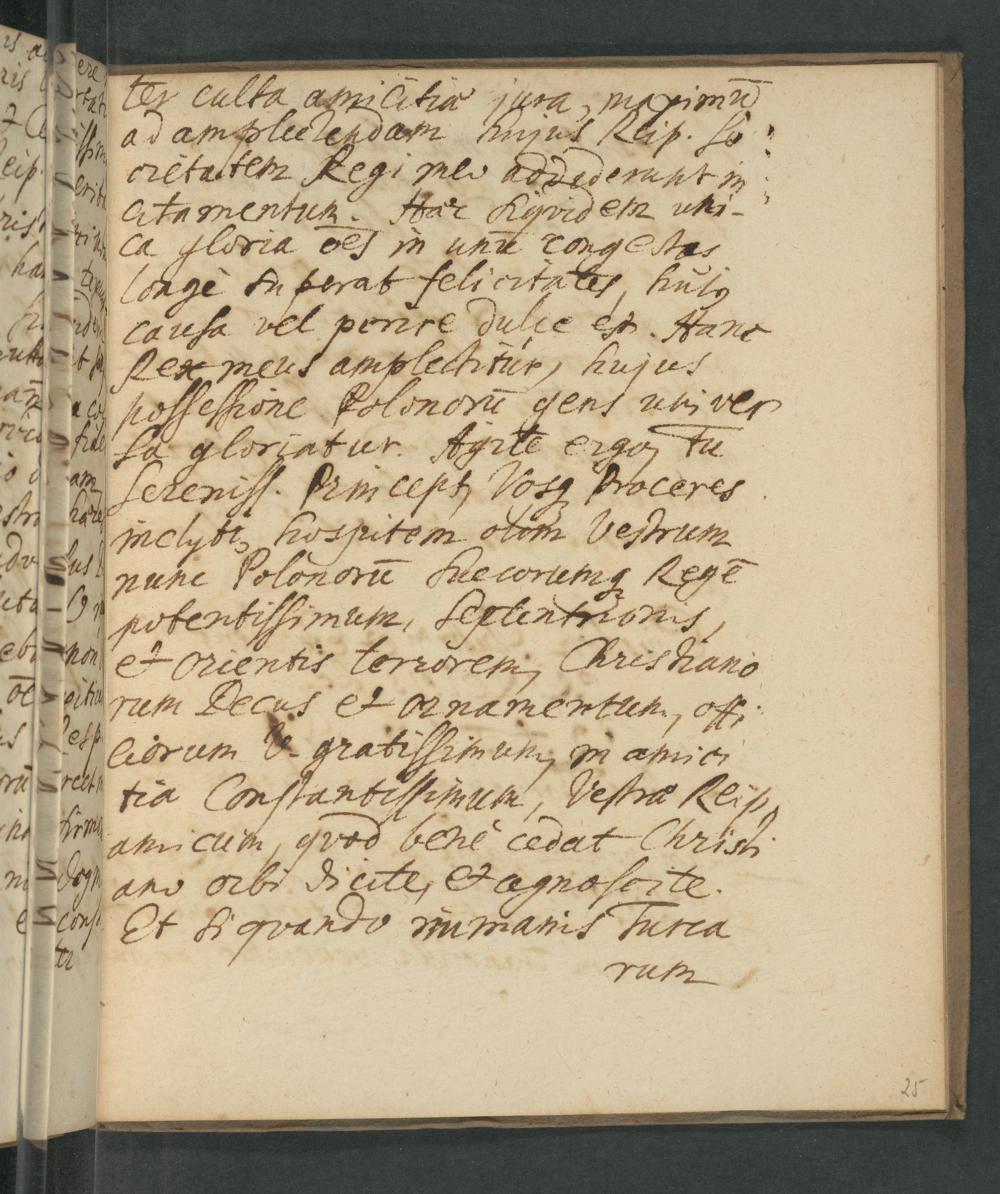 ter culta amicitiæ jura, maximū
ad amplectendam hujus Reip. So:
cietatem Regi meo addiderunt in:
citamentum. Hæc siqvidem uni-
ca gloria ōēs in unū congestas
longè superat felicitates, huiꝯ
causa vel perire dulce est. Hanc
Rex meus amplectitur, hujus
possessione Polonorū gens univer
sa gloriatur. Agite ergo, Tu
Sereniss. Princeps, Vosq Proceres
inclyti, hospitem olim Vestrum
nunc Polonorū Suecorumq Regē
potentissimum, Septentrionis,
et Orientis terrorem, Christiano
rum Decus et ornamentum, offi
ciorum V. gratissimum, in amici
tia Constantissimum, Vestræ Reip.
amicum, qvod benè cedat Christi
ano orbi dicite, et agnoscite.
Et si qvando inmanis Turca
rum
25